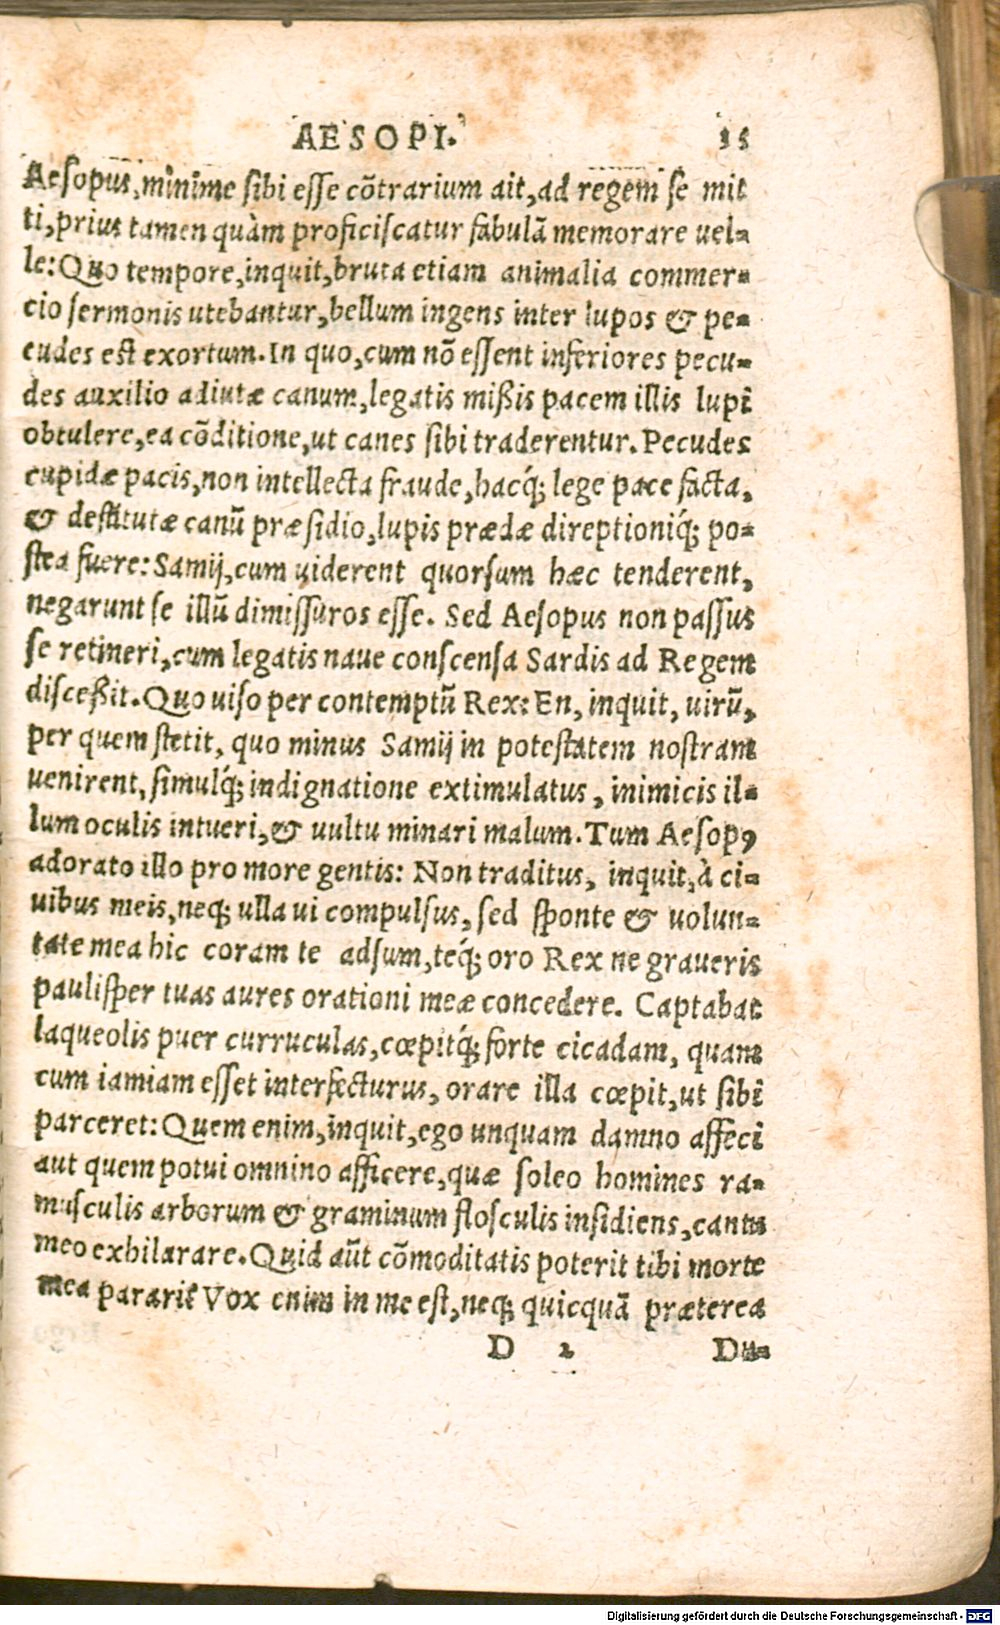 AESOPI. 25
Aesopus, minime sibi esse cõtrarium ait, ad regem se mit
ti, prius tamen quàm proficiscatur fabulã memorare uel-
le: Quo tempore, inquit, bruta etiam animalia commer-
cio sermonis utebantur, bellum ingens inter lupos & pe-
cudes est exortum. In quo, cum nõ essent inferiores pecu-
des auxilio adiutæ canum, legatis mißis pacem illis lupi
obtulere, ea cõditione, ut canes sibi traderentur. Pecudes
cupidæ pacis, non intellecta fraude, hacq́; lege pace facta,
& destitutæ canũ præsidio, lupis prædæ direptioniq́; po-
stea fuere: Samij, cum uiderent quorsum hæc tenderent,
negarunt se illũ dimissuros esse. Sed Aesopus non passus
se retineri, cum legatis naue conscensa Sardis ad Regem
disceßit. Quo uiso per contemptũ Rex: En, inquit, uirũ,
per quem stetit, quo minus Samij in potestatem nostram
uenirent, simulq́; indignatione extimulatus, inimicis il-
lum oculis intueri, & uultu minari malum. Tum Aesopꝰ
adorato illo pro more gentis: Non traditus, inquit, à ci-
uibus meis, neq; ulla ui compulsus, sed sponte & uolun-
tate mea hic coram te adsum, teq́; oro Rex ne graueris
paulisper tuas aures orationi meæ concedere. Captabat
laqueolis puer curruculas, cœpitq́; forte cicadam, quam
cum iamiam esset interfecturus, orare illa cœpit, ut sibi
parceret: Quem enim, inquit, ego unquam damno affeci
aut quem potui omnino afficere, quæ soleo homines ra-
musculis arborum & graminum flosculis insidens, cantu
meo exhilarare. Quid aũt cõmoditatis poterit tibi morte
mea parari? Vox enim in me est, neq; quicquã præterea
D 2 Du-
Digitalisierung gefördert durch die Deutsche Forschungsgemeinschaft - DFG